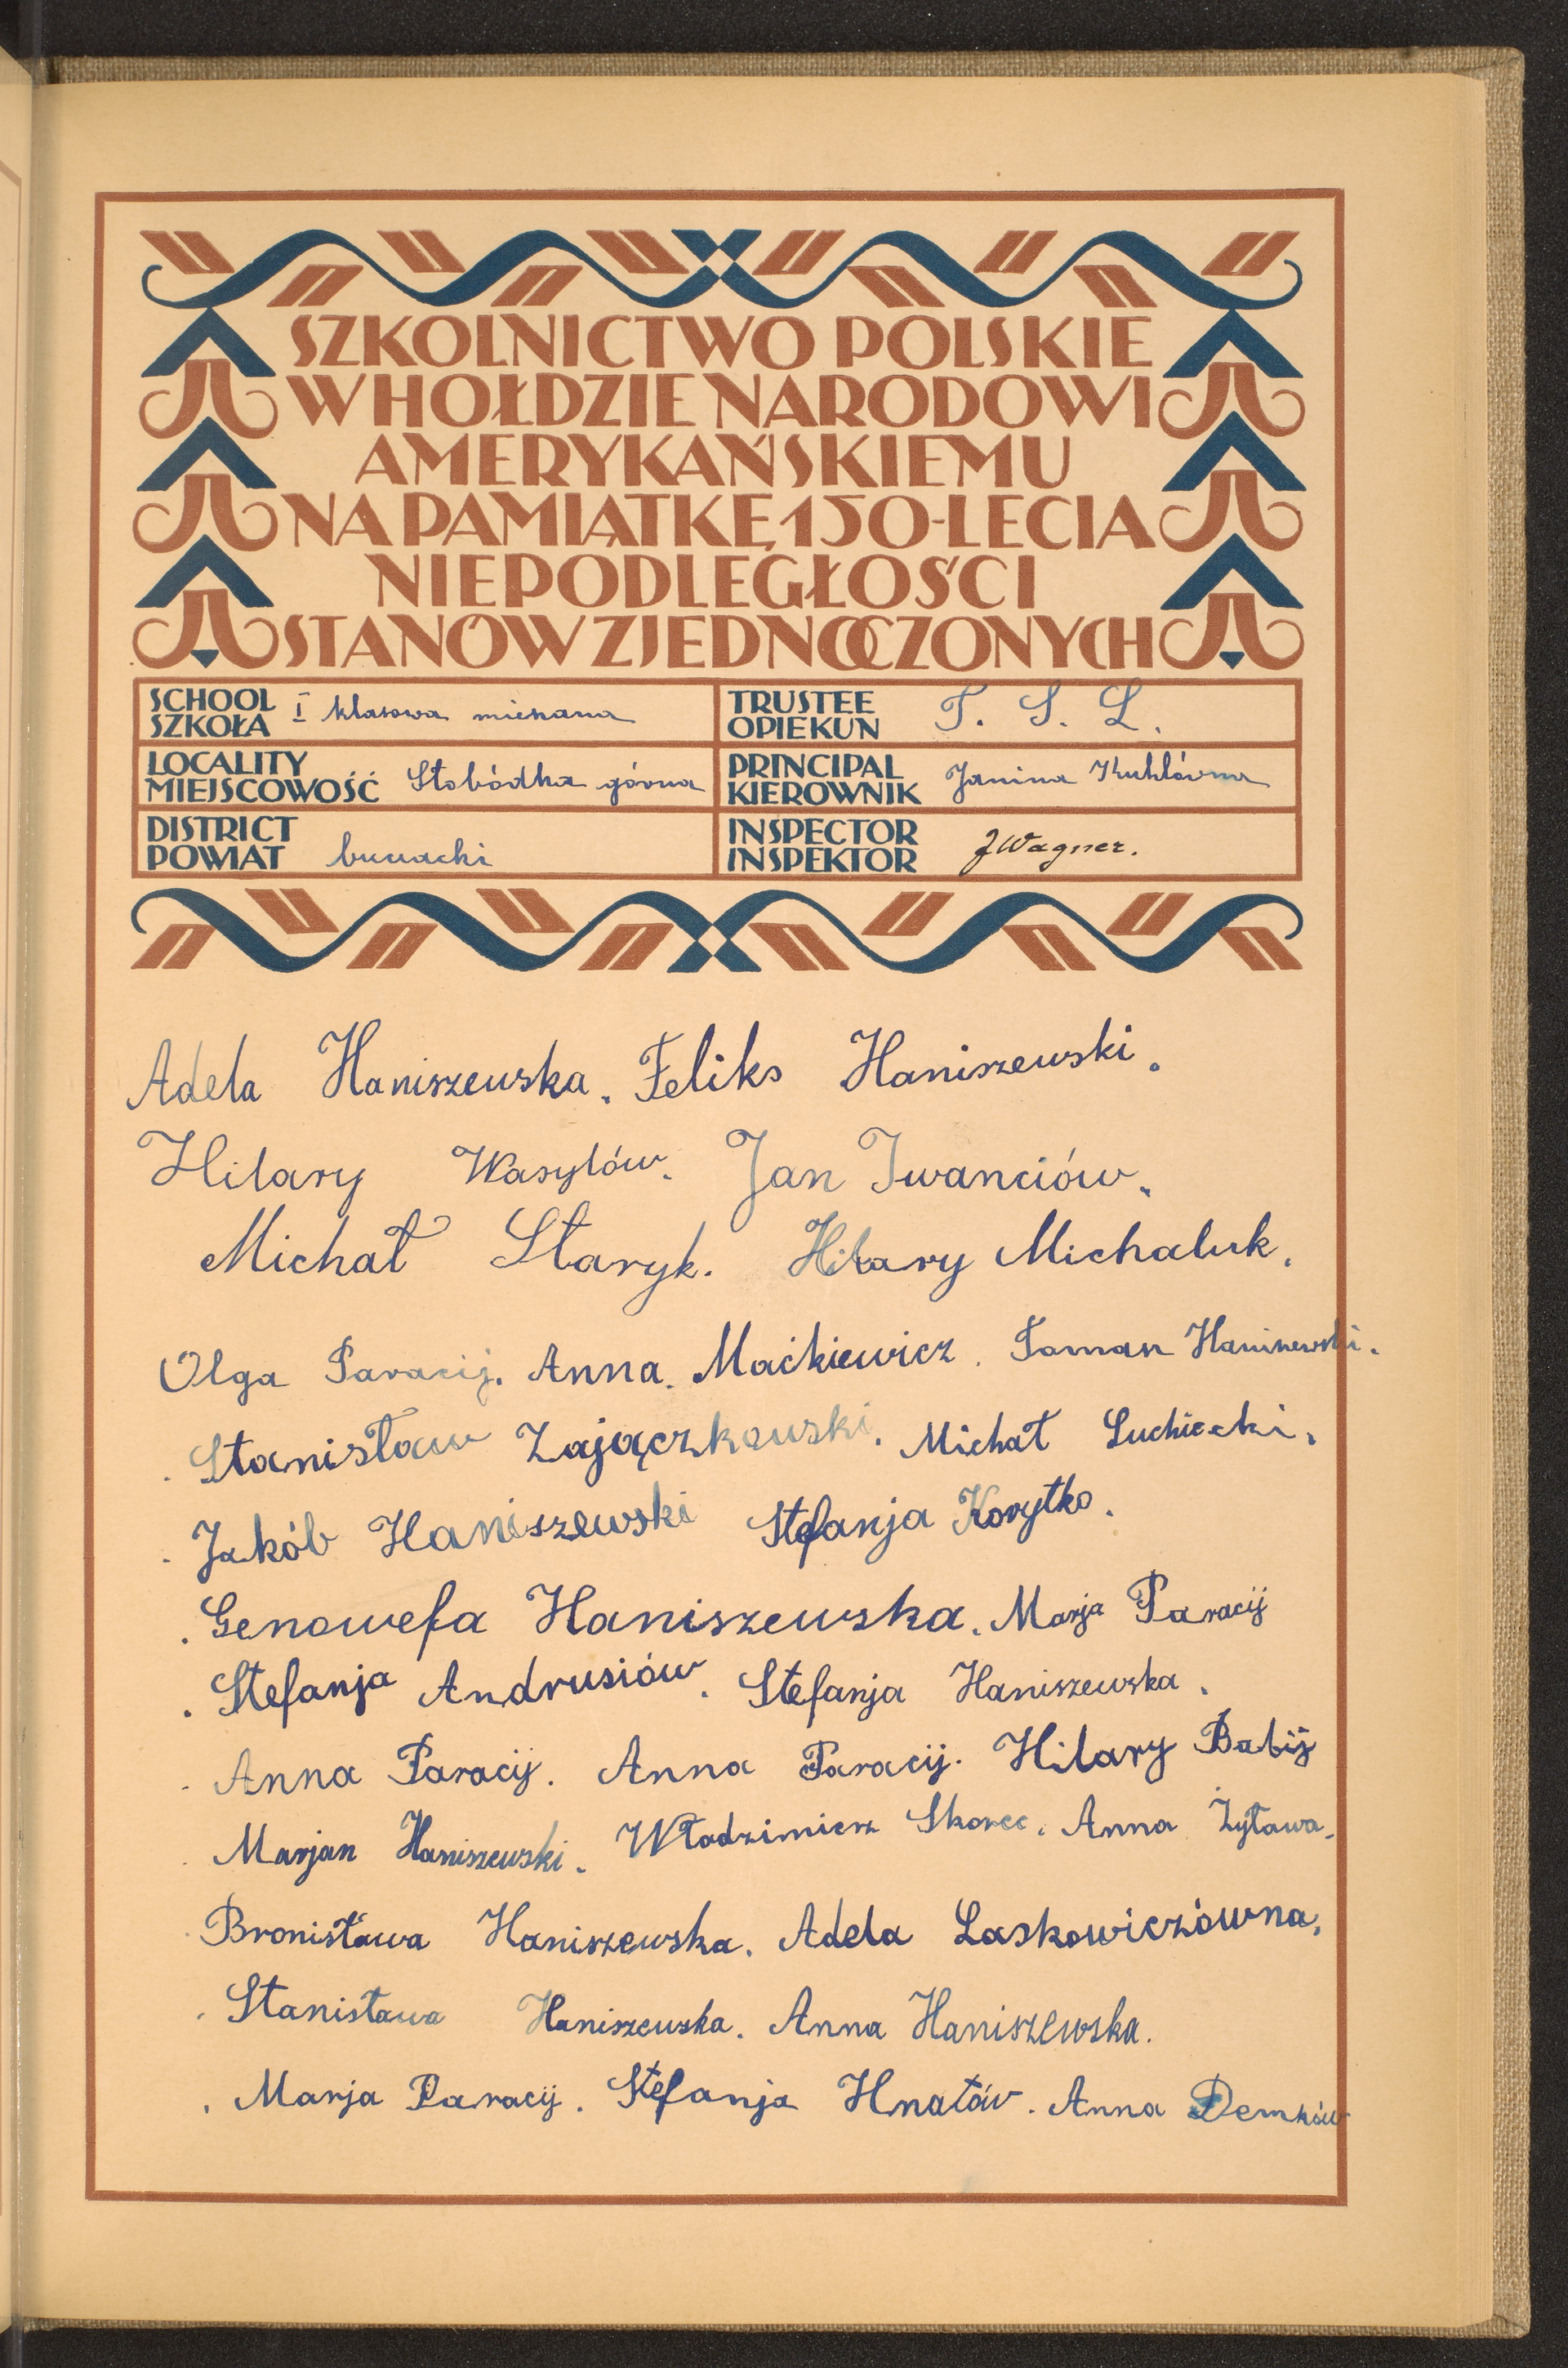 SZKOLNICTWO POLSKIE
W HOŁDZIE NARODOWI
AMERYKAŃSKIEMU
NA PAMIĄTKĘ 150-LECIA
NIEPODLEGŁOŚCI
STANÓW ZJEDNOCZONYCH
SCHOOL SZKOŁA I klasowa mieszana
TRUSTEE OPIEKUN T. S. L.
LOCALITY MIEJSCOWOŚĆ Słobódka górna
PRINCIPAL KIEROWNIK Janina Kuhlówna
DISTRICT POWIAT buczacki
INSPECTOR INSPEKTOR J Wagner.
Adela Haniszewska. Feliks Haniszewski.
Hilary Wasylów. Jan Iwanciów.
Michał Staryk. Hilary Michaluk.
Olga Paracij. Anna. Maćkiewicz. Haniszewski.
Stanisław Zajączkowski. Michał Suchecki.
Jakób Haniszewski Stefanja Korytko.
Genowefa Haniszewska. Marja Paracij
Stefanja Andrusiów. Stefanja Haniszewska.
Anna Paracij. Anna Paracij. Hilary Babij
Marjan Haniszewski. Włodzimierz Skorec. Anna Żyława.
Bronisława Haniszewska. Adela Laskowiczówna.
Stanisława Haniszewska. Anna Haniszewska.
Marja Paracij. Stefanja Hnatów. Anna Demków